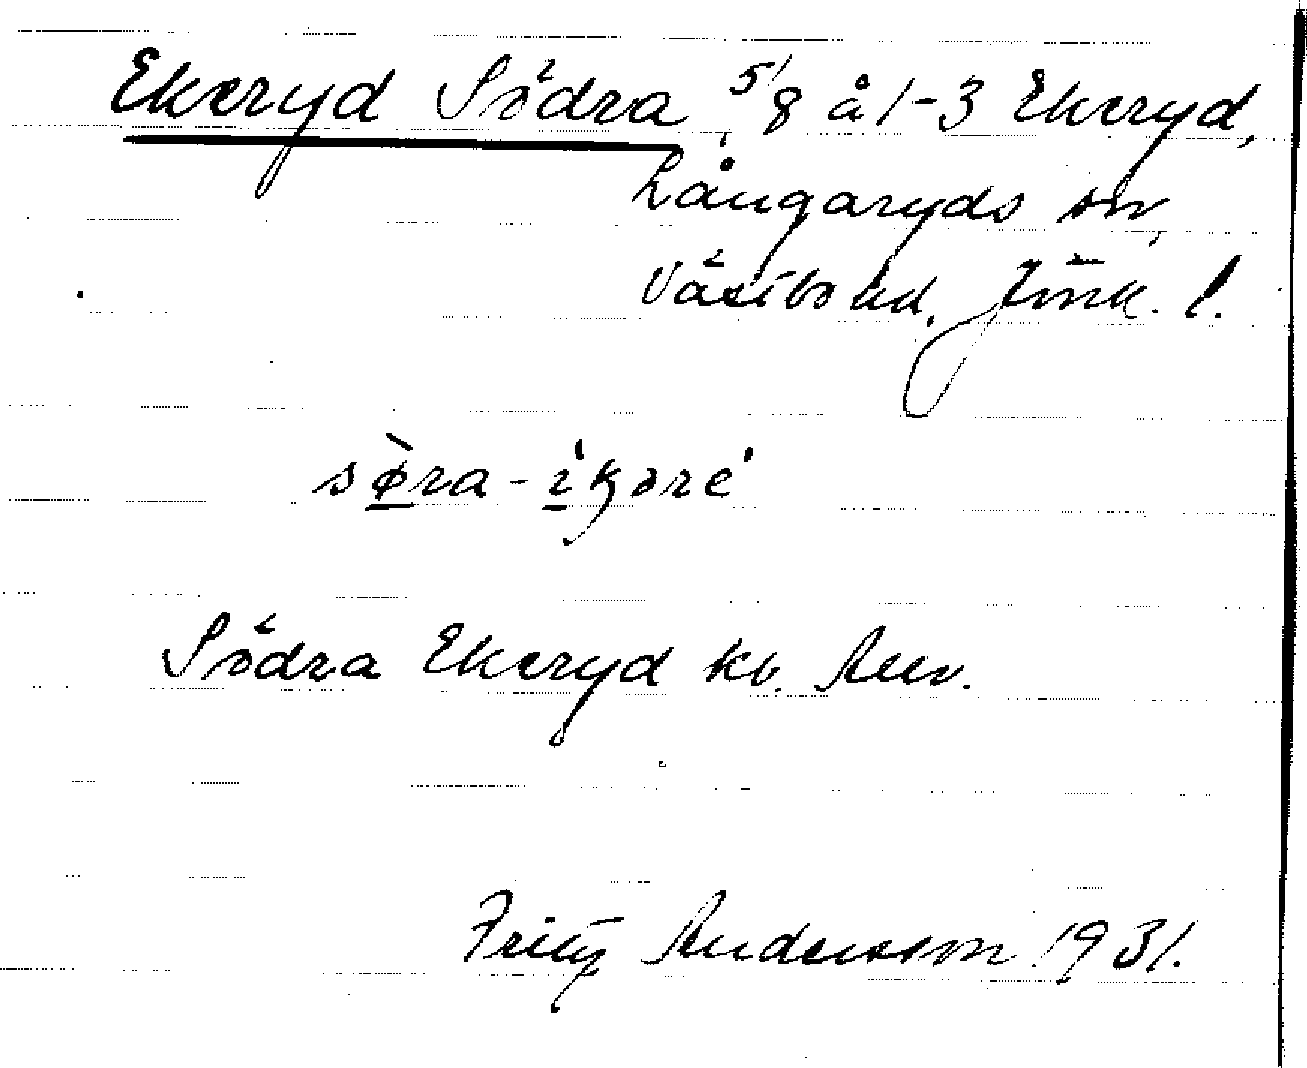 Ekeryd Södra, 5/8 å 1-3 Ekeryd,
Långaryds sn,
Västbo hd, Jönk. l.
sø̀ra-íkəre
Södra Ekeryd kv.
Fritz Andersson 1931.